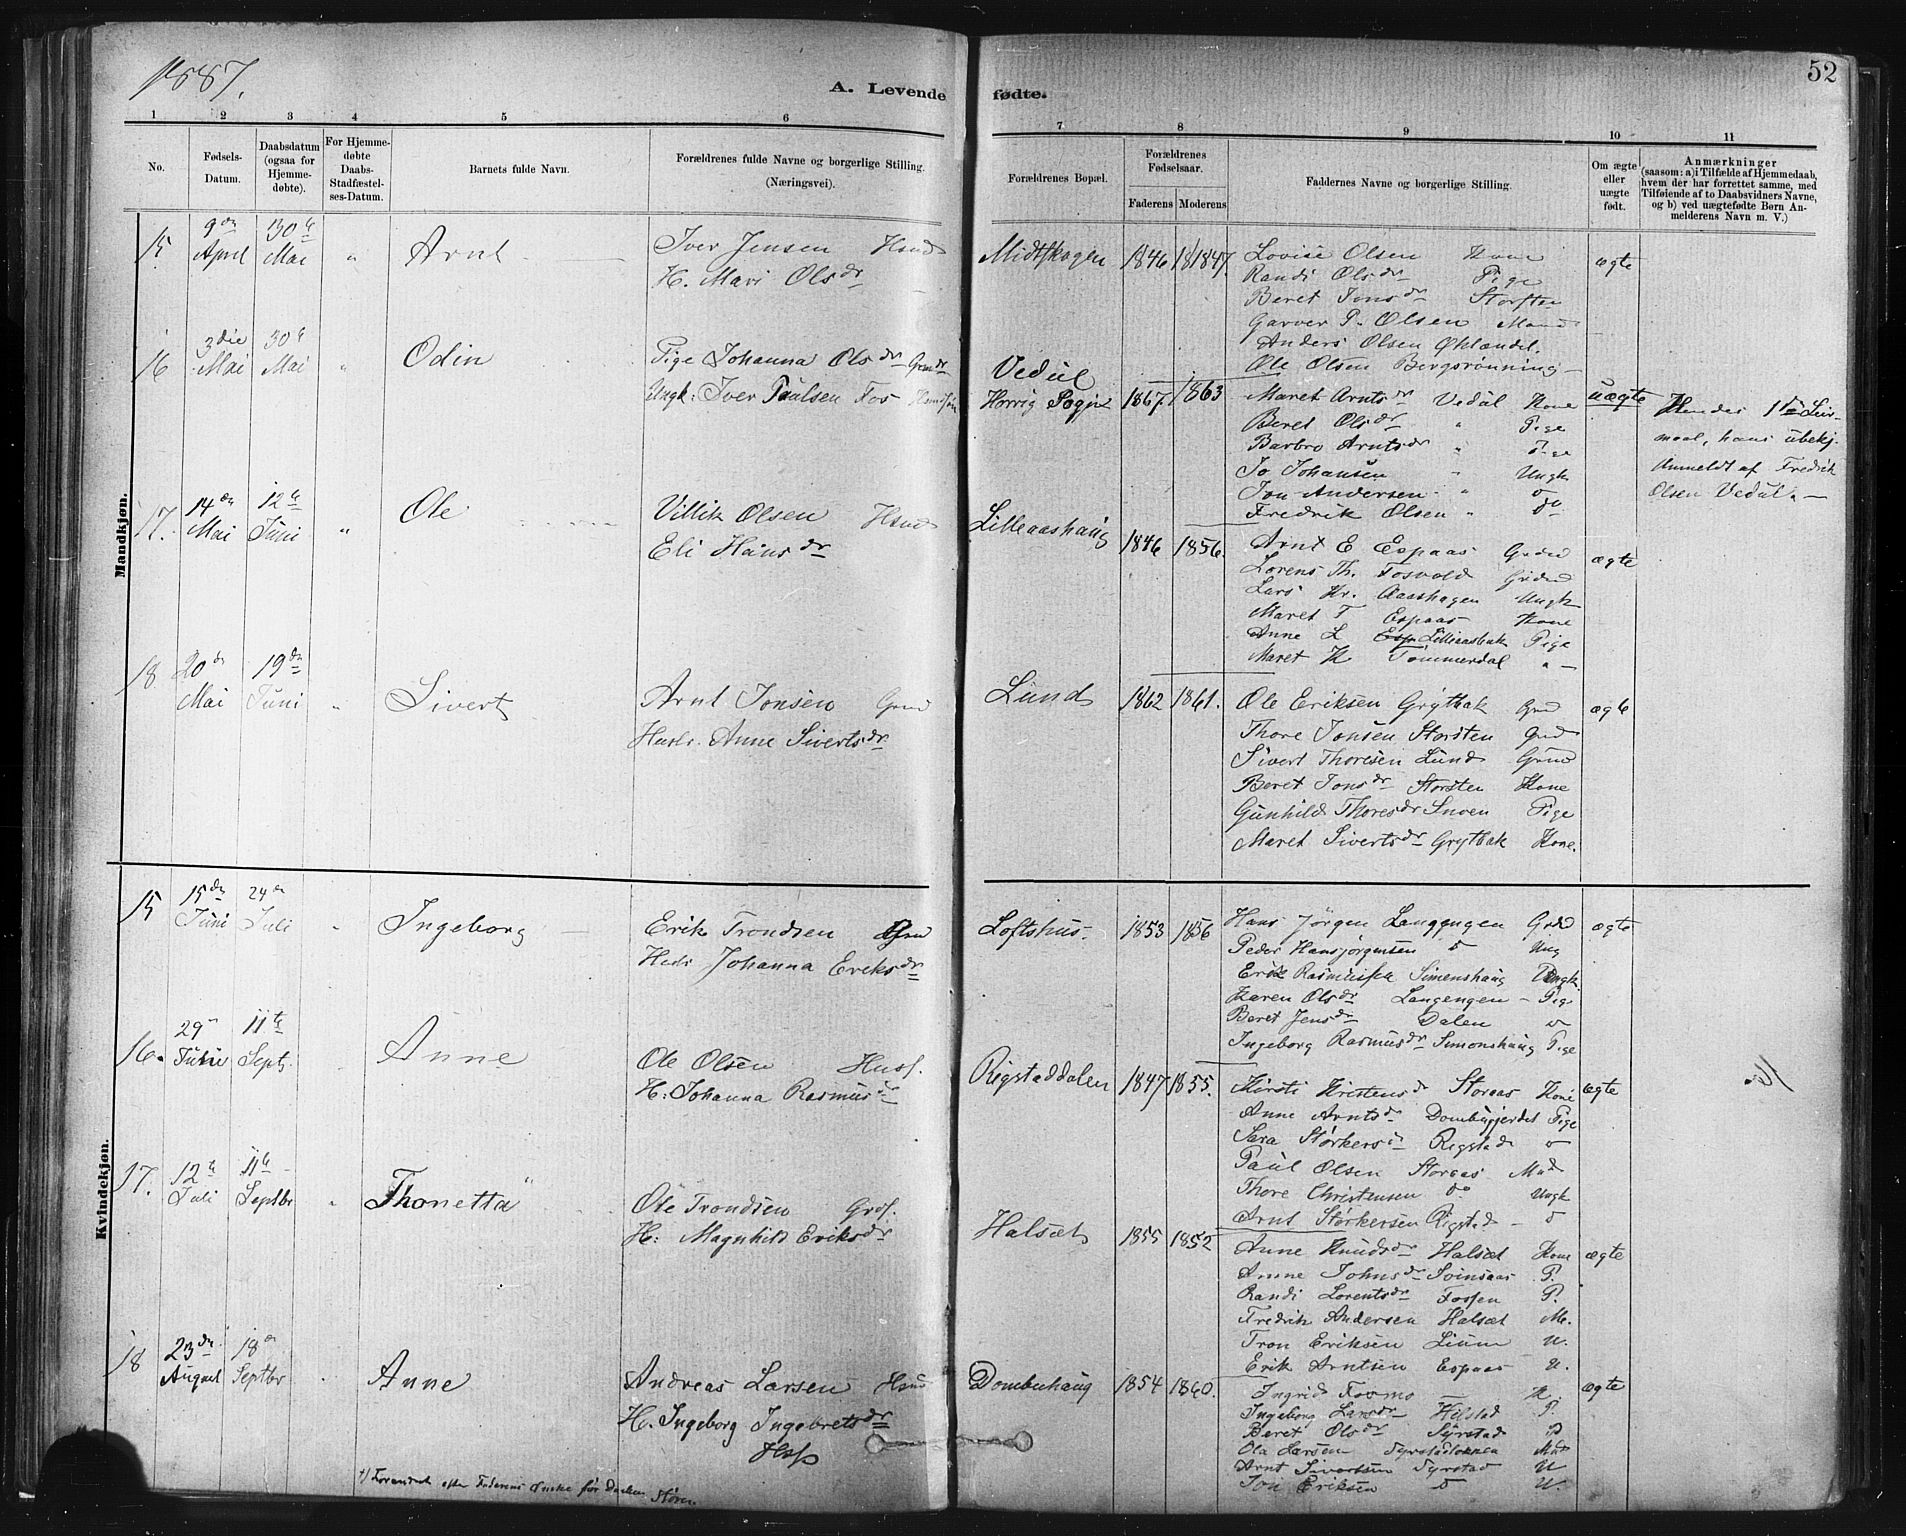 1887.
52
A. Levende fødte.
1 2 3 4 5 6 7 8 9 10 11
No.
Fødsels-Datum.
Daabsdatum (ogsaa for Hjemme-døbte).
For Hjemme-døbte Daabs-Stadfæstel-ses-Datum.
Barnets fulde Navn.
Forældrenes fulde Navne og borgerlige Stilling. (Næringsvei).
Forældrenes Bopæl.
Forældrenes Fødselsaar.
Faderens Moderens
Faddernes Navne og borgerlige Stilling.
Om ægte eller uægte født.
Anmærkninger
(saasom: a) i Tilfælde af Hjemmedaab,
hvem der har forrettet samme, med
Tilføiende af to Daabsvidners Navne,
og b) ved uægtefødte Børn An-
melderens Navn m. V.)
Mandkjøn.
15 9de April 30te Mai " Arnt
Iver Jensen Hsmd
H. Mari Olsdr
Midtskogen 1846 1847. ægte
Lovise Olsen Kone
Randi Olsdr Pige
Beret Jonsdr Storsten
Garver P. Olsen Mand
Anders Olsen Øhlandel.
Ole Olsen Bergsrønning
16 3die Mai 30te Mai " Odin
Pige Johanna Olsdr Grmdr
Ungk: Iver Paalsen Fos
Vedul
Horrig Sogn 1867. 1863 uægte
Maret Arntsdr Vedul Kone
Beret Olsdr " Pige
Barbro Arntsdr " Pige
Jo Johansen " Ungk
Jon Andersen " do
Fredrik Olsen " do
Hendes 1ste Leir-
maal, hans ubekj.
Anmeldt af Fredrik
Olsen Vedul.
17. 14de Mai 12te Juni " Ole
Villik Olsen Hsmd
Eli Hansdr
Lilleaashaug 1846 1856. ægte
Arnt E Espaas Grdmd
Lorens Th. Fosvold Grdmd
Lars Kr. Aashagen Ungk
Maret T Espaas Kone
Anne L Lilleaasbak Pige
Maret K Tømmerdal "
18 20de Mai 19de Juni " Sivert
Arnt Jonsen Grmd
Hustr. Anne Sivertsdr
Lund 1862 1861. ægte
Ole Eriksen Grytbak Gmd
Thore Jonsen Storsten Gmd
Sivert Thoresen Lund Grmd
Beret Jonsdr Storsten Kone
Gunhild Thoresdr Snoen Pige
Maret Sivertsdr Grytbak Kone.
Kvindekjøn.
15 15de Juni 24de Juli " Ingeborg
Erik Trondsen Grmd
Hustr Johanna Eriksdr
Loftshus. 1853 1856 ægte
Hans Jørgen Langengen Grdmd
Peder Hansjørgensen do Ung
Erik Rasmussen Simenshaug Ungk.
Karen Olsdr Langengen Pige
Beret Jensdr Dalen do
Ingeborg Rasmusdr Simonshaug Pige
16. 29de 11te Septr. Anne
Ole Olsen Husf.
H: Johanna Rasmusdr
Rigstaddalen 1847 1855. ægte
Kirsti Kristensdr Storaas Kone
Anne Arntsdr Dombugjerdet Pige
Sara Størkersdr Rigstad do
Paul Olsen Storaas Md
Thore Christensen do Ungk
Arnt Størkersen Rigstad do
17. 12te Juli 11te Septbr " Thonetta
Ole Trondsen
H: Magnhild Eriksdr
Halsæt 1855 1852 ægte
Anne Knudsdr Halsæt Kone
Anne Johnsdr Svinsaas P.
Randi Lorentsdr Fossen P.
Fredrik Andersen Halsæt M.
Tron Eriksen Lium U.
Erik Arntsen Espaas U.
18 23de August 18de Septbr Anne
Andreas Larsen Hsmd
H. Ingeborg Ingebretsdr
Dombuhaug 1854 1860. ægte
Ingrid Formo K.
Ingeborg Larsdr Helstad P
Beret Olsdr Syrstad P
Ola Larsen Syrstadløkken Md
Arnt Sivertsen Syrstad U
Jon Eriksen do U.
+) Forandret efter Faderens Ønske før Daaben Støren.